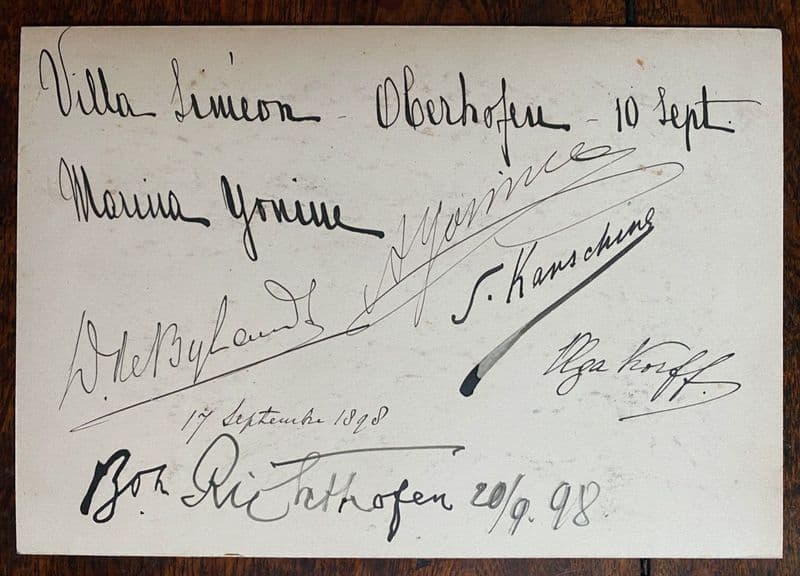 Villa Siméon - Oberhofen - 10 Sept.
Marina Yonine
A Yonine
S. Kanschine
W. de Bylandt
Olga Korff.
17 Septembre 1898
Bon Richthofen 20/9. 98.